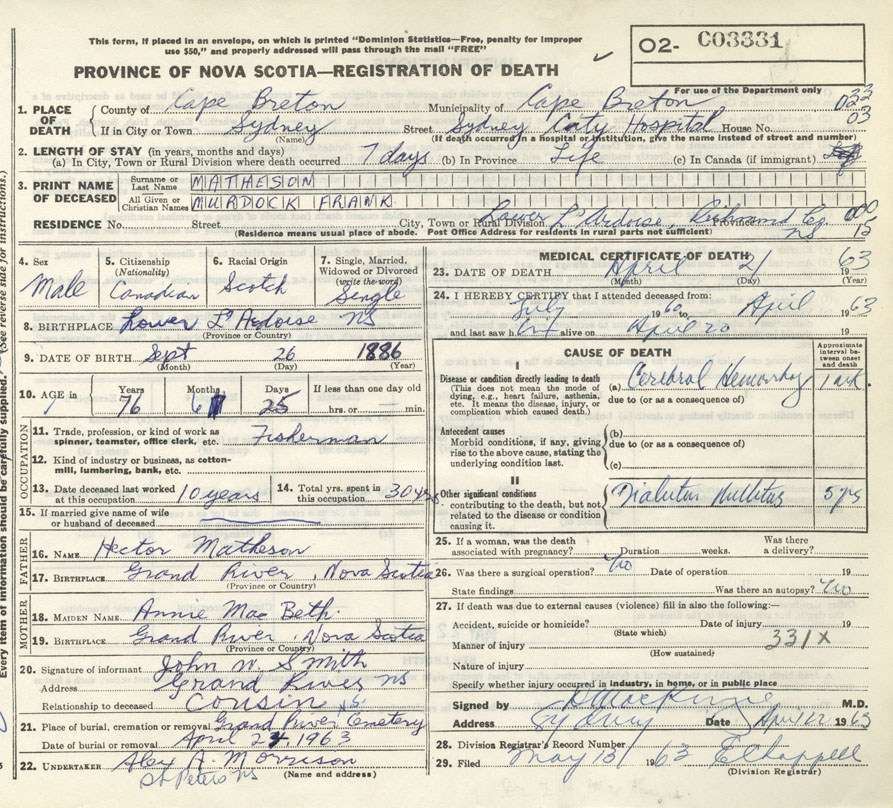 This form, if placed in an envelope, on which is printed "Dominion Statistics—Free, penalty for improper
use $50," and properly addressed will pass through the mail "FREE"
O2- C03331
PROVINCE OF NOVA SCOTIA—REGISTRATION OF DEATH
For use of the Department only
1. PLACE OF DEATH County of Cape Breton Municipality of Cape Breton 023
If in City or Town Sydney (Name) Street Sydney City Hospital House No. 03
(If death occurred in a hospital or institution, give the name instead of street and number)
2. LENGTH OF STAY (in years, months and days)
(a) In City, Town or Rural Division where death occurred 7 days (b) In Province Life (c) In Canada (if immigrant)
3. PRINT NAME OF DECEASED Surname or Last Name MATHESON
All Given or Christian Names MURDOCK FRANK
RESIDENCE No. Street City, Town or Rural Division Lower L'Ardoise, Richmond Co. Province NS 15
(Residence means usual place of abode. Post Office Address for residents in rural parts not sufficient)
4. Sex Male
5. Citizenship (Nationality) Canadian
6. Racial Origin Scotch
7. Single, Married, Widowed or Divorced (write the word) Single
8. BIRTHPLACE Lower L'Ardoise NS
(Province or Country)
9. DATE OF BIRTH Sept 26 1886
(Month) (Day) (Year)
10. AGE in Years 76 Months 6 Days 25 If less than one day old hrs. or min.
OCCUPATION
11. Trade, profession or kind of work as spinner, teamster, office clerk, etc. Fisherman
12. Kind of industry or business, as cotton-mill, lumbering, bank, etc.
13. Date deceased last worked at this occupation 10 years 14. Total yrs. spent in this occupation 30 yrs
15. If married give name of wife or husband of deceased
FATHER
16. NAME Hector Matheson
17. BIRTHPLACE Grand River, Nova Scotia
(Province or Country)
MOTHER
18. MAIDEN NAME Annie MacBeth.
19. BIRTHPLACE Grand River, Nova Scotia
(Province or Country)
20. Signature of informant John W. Smith
Address Grand River NS
Relationship to deceased Cousin
21. Place of burial, cremation or removal Grand River Cemetery
Date of burial or removal April 24, 1963
22. UNDERTAKER Alex A. Morrison
St Peters NS (Name and address)
MEDICAL CERTIFICATE OF DEATH
23. DATE OF DEATH April 21 1963
(Month) (Day) (Year)
24. I HEREBY CERTIFY that I attended deceased from:
July 1960 to April 1963
and last saw him alive on April 20 19
CAUSE OF DEATH
Approximate interval between onset and death
I
Disease or condition directly leading to death
(This does not mean the mode of dying, e.g., heart failure, asthenia, etc. It means the disease, injury, or complication which caused death.)
(a) Cerebral Hemorrhag 1 wk.
due to (or as a consequence of)
Antecedent causes
Morbid conditions, if any, giving rise to the above cause, stating the underlying condition last.
(b)
due to (or as a consequence of)
(c)
II
Other significant conditions contributing to the death, but not related to the disease or condition causing it.
Diabetus Mellitus 5 yrs
25. If a woman, was the death associated with pregnancy? Duration weeks. Was there a delivery?
26. Was there a surgical operation? No Date of operation 19
State findings Was there an autopsy? No
27. If death was due to external causes (violence) fill in also the following:—
Accident, suicide or homicide? Date of injury 19
(State which)
Manner of injury 331X
(How sustained)
Nature of injury
Specify whether injury occurred in industry, in home, or in public place
Signed by MacKenzie M.D.
Address Sydney Date April 22 1963
28. Division Registrar's Record Number
29. Filed May 13 1963 E Chappell
(Division Registrar)
Every item of information should be carefully supplied. (See reverse side for instructions.)